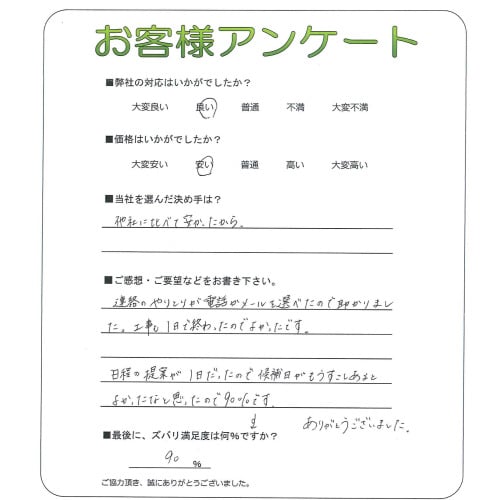 お客様アンケート
■弊社の対応はいかがでしたか？
大変良い 良い 普通 不満 大変不満
■価格はいかがでしたか？
大変安い 安い 普通 高い 大変高い
■当社を選んだ決め手は？
他社に比べて安かったから。
■ご感想・ご要望などをお書き下さい。
連絡のやりとりが電話かメールを選べたので助かりまし
た。工事も1日で終わったのでよかったです。
日程の提案が1日だったので候補日がもうすこしあると
よかったなと思ったので90%です。
ありがとうございました。
■最後に、ズバリ満足度は何％ですか？
90 %
ご協力頂き、誠にありがとうございました。